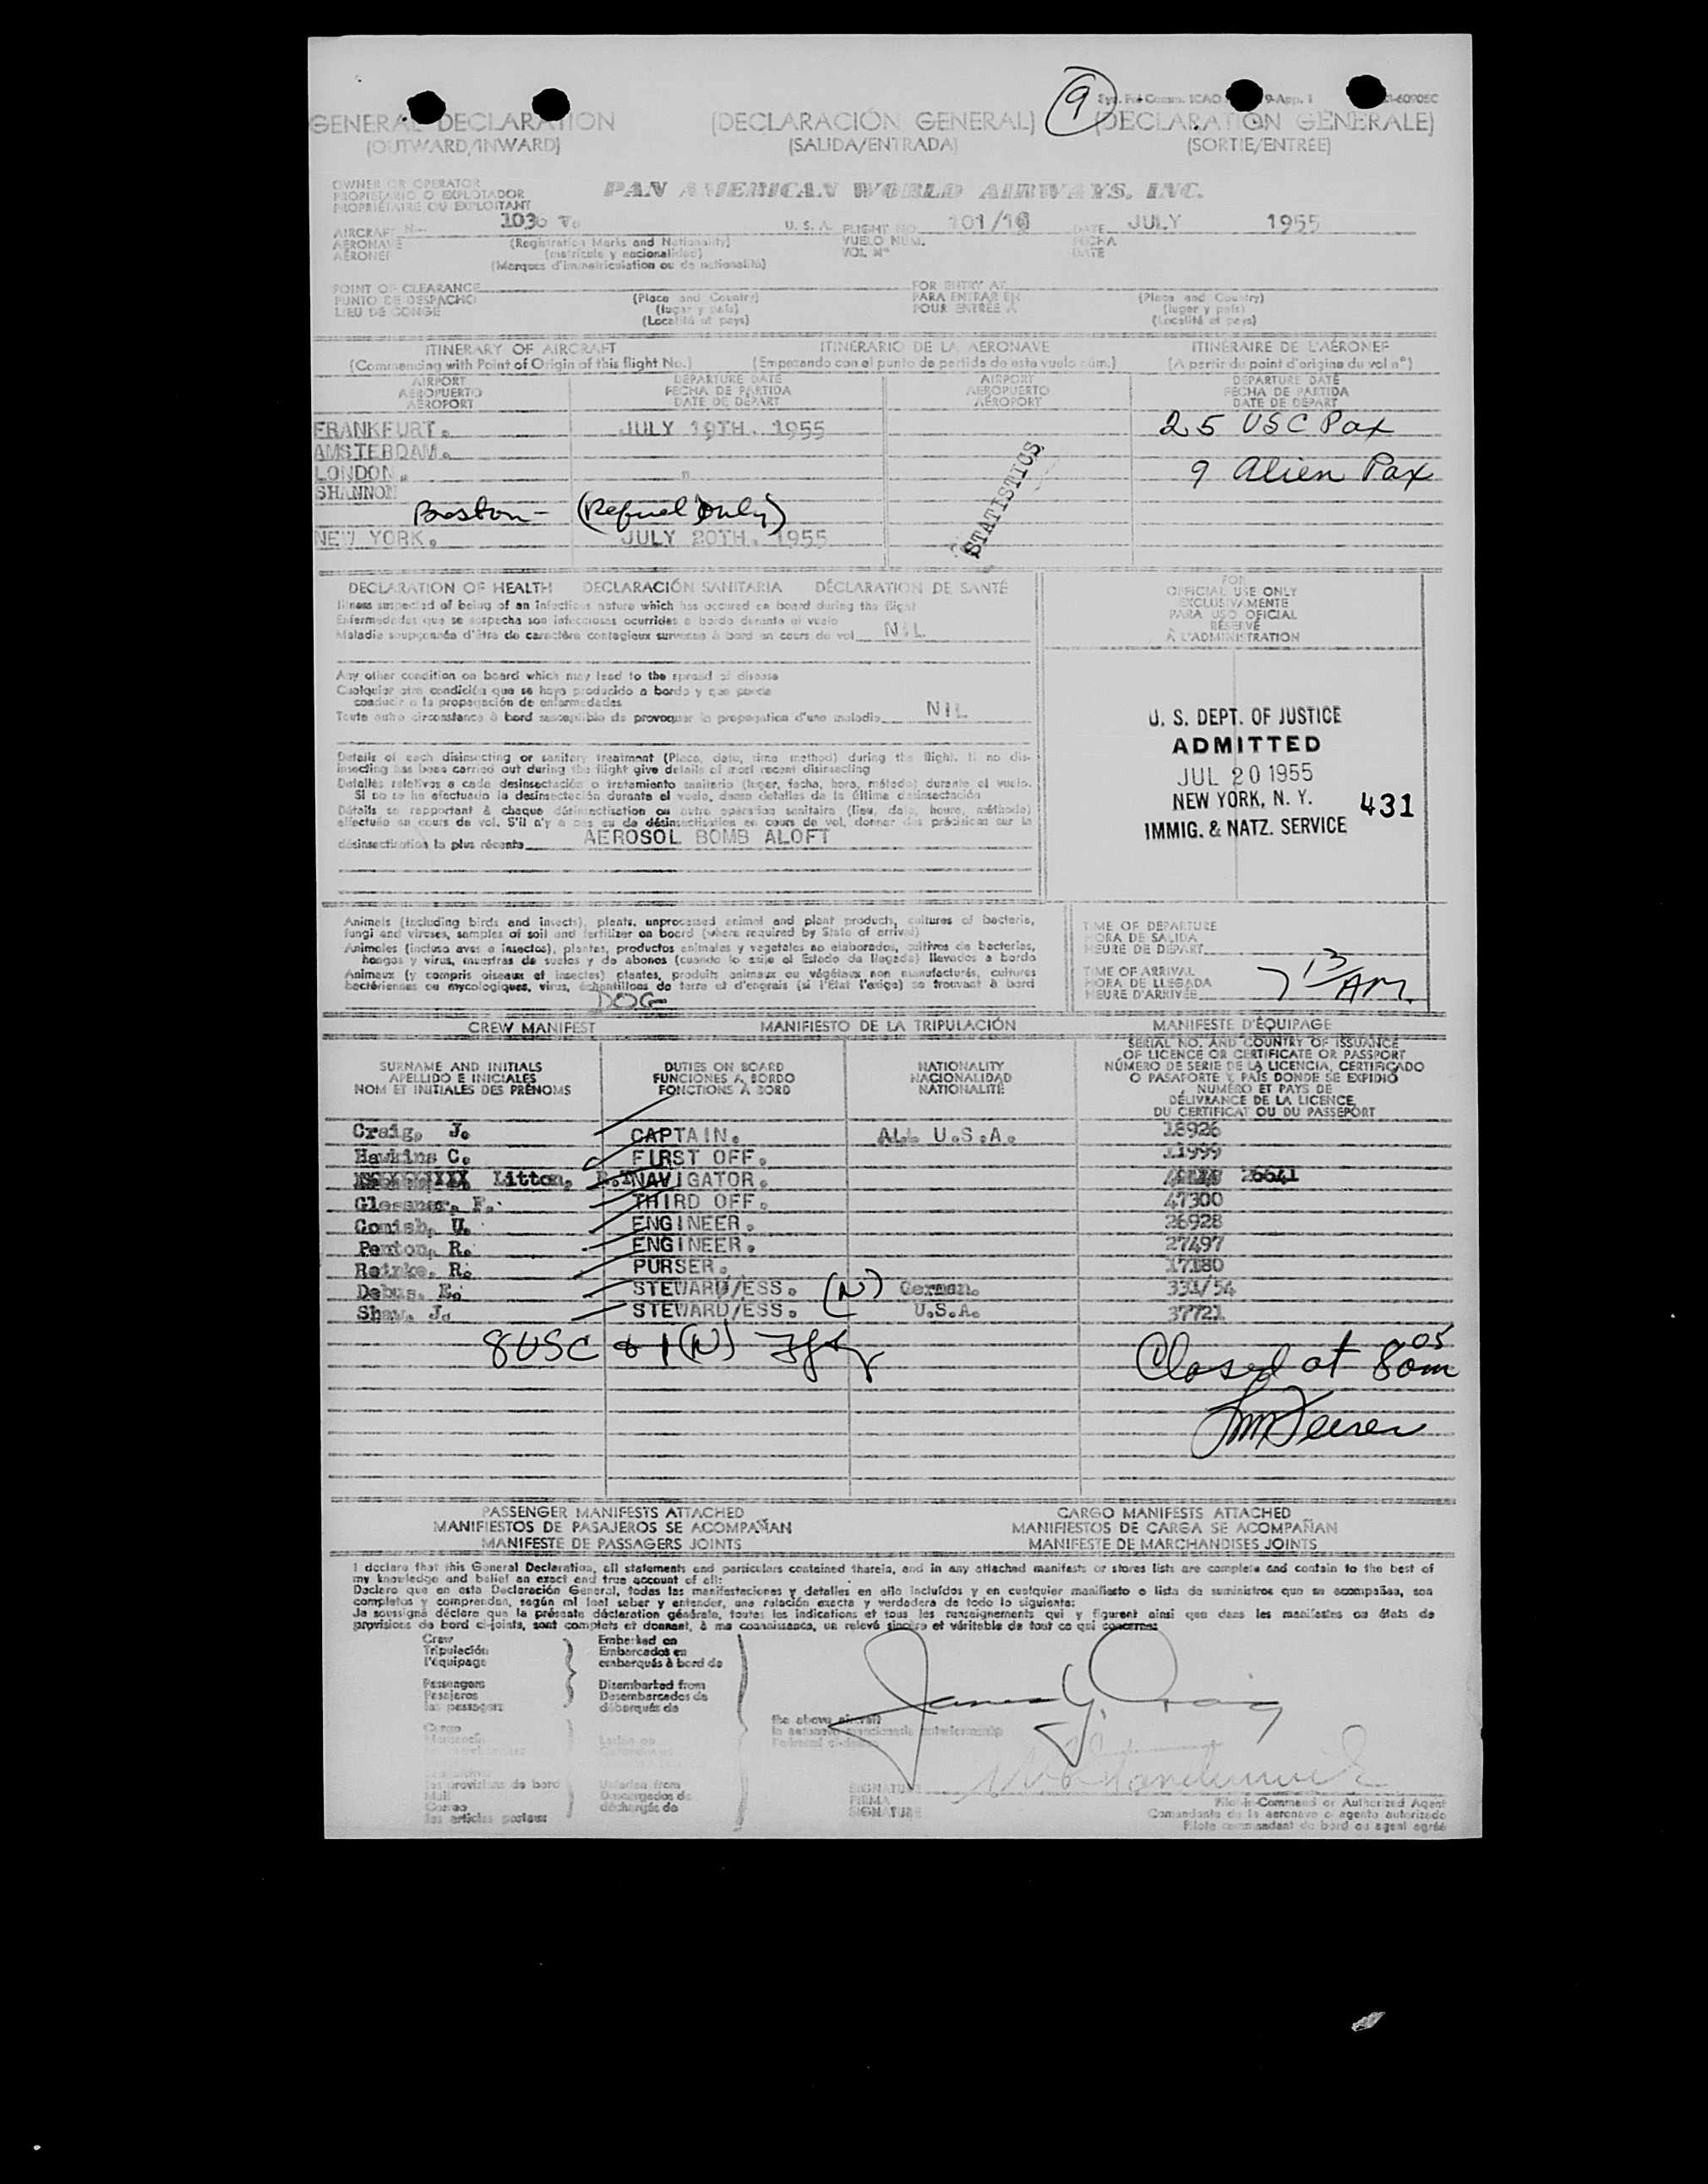 9
GENERAL DECLARATION (DECLARACIÓN GENERAL) (DECLARATION GENERALE)
(OUTWARD/INWARD) (SALIDA/ENTRADA) (SORTIE/ENTREE)
OWNER OR OPERATOR
PROPIETARIO O EXPLOTADOR
PROPRIÉTAIRE OU EXPLOITANT
PAN AMERICAN WORLD AIRWAYS, INC.
AIRCRAFT N- U. S. A. FLIGHT NO. DATE JULY 1955
AÉRONAVE (Registration Marks and Nationality) VUELO NUM. FECHA
AÉRONEF (matrícula y nacionalidad) VOL Nº DATE
(Marques d'immatriculation ou de nationalité)
POINT OF CLEARANCE FOR ENTRY AT
PUNTO DE DESPACHO (Place and Country) PARA ENTRAR EN (Place and Country)
LIEU DE CONGÉ (lugar y país) POUR ENTRÉE A (lugar y país)
(Localité et pays) (Localité et pays)
ITINERARY OF AIRCRAFT ITINERARIO DE LA AERONAVE ITINÉRAIRE DE L'AÉRONEF
(Commencing with Point of Origin of this flight No.) (Empezando con el punto de partida de este vuelo núm.) (A partir du point d'origine du vol nº)
AIRPORT DEPARTURE DATE AIRPORT DEPARTURE DATE
AEROPUERTO FECHA DE PARTIDA AEROPUERTO FECHA DE PARTIDA
AÉROPORT DATE DE DÉPART AÉROPORT DATE DE DÉPART
FRANKFURT. JULY 19TH. 1955 25 USC Pax
AMSTERDAM.
LONDON. " 9 Alien Pax
SHANNON
STATISTICS
Boston - (Refuel Only)
NEW YORK. JULY 20TH. 1955
DECLARATION OF HEALTH DECLARACIÓN SANITARIA DÉCLARATION DE SANTÉ
Illness suspected of being of an infectious nature which has occured on board during the flight
Enfermedades que se sospecha son infecciosas ocurridas a bordo durante el vuelo
Maladie soupçonnée d'être de caractère contagieux survenue à bord en cours de vol NIL
FOR
OFFICIAL USE ONLY
EXCLUSIVAMENTE
PARA USO OFICIAL
RÉSERVÉ
À L'ADMINISTRATION
Any other condition on board which may lead to the spread of disease
Cualquier otra condición que se haya producido a bordo y que pueda
conducir a la propagación de enfermedades
Toute autre circonstance à bord susceptible de provoquer la propagation d'une maladie NIL
Details of each disinsecting or sanitary treatment (Place, date, time method) during the flight. If no dis-
insecting has been carried out during the flight give details of most recent disinsecting
Detalles relativos a cada desinsectación o tratamiento sanitario (lugar, fecha, hora, método) durante el vuelo.
Si no se ha efectuado la desinsectación durante el vuelo, dense detalles de la última desinsectación
Détails se rapportant à chaque désinsectisation ou autre opération sanitaire (lieu, date, heure, méthode)
effectuée en cours de vol. S'il n'y a pas eu de désinsectisation en cours de vol, donner des précisions sur la
désinsectisation la plus récente AEROSOL BOMB ALOFT
U. S. DEPT. OF JUSTICE
ADMITTED
JUL 20 1955
NEW YORK, N. Y. 431
IMMIG. & NATZ. SERVICE
Animals (including birds and insects), plants, unprocessed animal and plant products, cultures of bacteria,
fungi and viruses, samples of soil and fertilizer on board (where required by State of arrival)
Animales (incluso aves e insectos), plantas, productos animales y vegetales no elaborados, cultivos de bacterias,
hongos y virus, muestras de suelos y de abonos (cuando lo exija el Estado de llegada) llevados a bordo
Animaux (y compris oiseaux et insectes) plantes, produits animaux ou végétaux non manufacturés, cultures
bactériennes ou mycologiques, virus, échantillons de terre et d'engrais (si l'État l'exige) se trouvant à bord
DOG
TIME OF DEPARTURE
HORA DE SALIDA
HEURE DE DÉPART
TIME OF ARRIVAL
HORA DE LLEGADA
HEURE D'ARRIVÉE 7 13 AM.
CREW MANIFEST MANIFIESTO DE LA TRIPULACIÓN MANIFESTE D'ÉQUIPAGE
SURNAME AND INITIALS
APELLIDO E INICIALES
NOM ET INITIALES DES PRÉNOMS
DUTIES ON BOARD
FUNCIONES A BORDO
FONCTIONS À BORD
NATIONALITY
NACIONALIDAD
NATIONALITÉ
SERIAL NO. AND COUNTRY OF ISSUANCE
OF LICENCE OR CERTIFICATE OR PASSPORT
NÚMERO DE SERIE DE LA LICENCIA, CERTIFICADO
O PASAPORTE Y PAÍS DONDE SE EXPIDIÓ
NUMÉRO ET PAYS DE
DÉLIVRANCE DE LA LICENCE
DU CERTIFICAT OU DU PASSEPORT
Craig, J. CAPTAIN. ALL U.S.A. 18926
Hawkins C. FIRST OFF. 11999
Litton, NAVIGATOR. 26641
Glessner, F. THIRD OFF. 47300
Comish, U. ENGINEER. 26928
Penton, R. ENGINEER. 27497
Reinke, R. PURSER. 17180
Debus, E. STEWARD/ESS. (N) German. 331/54
Shaw, J. STEWARD/ESS. U.S.A. 37721
8 USC & 1 (N)
Closed at 8 05 am
PASSENGER MANIFESTS ATTACHED CARGO MANIFESTS ATTACHED
MANIFIESTOS DE PASAJEROS SE ACOMPAÑAN MANIFIESTOS DE CARGA SE ACOMPAÑAN
MANIFESTE DE PASSAGERS JOINTS MANIFESTE DE MARCHANDISES JOINTS
I declare that this General Declaration, all statements and particulars contained therein, and in any attached manifests or stores lists are complete and contain to the best of
my knowledge and belief an exact and true account of all:
Declaro que en esta Declaración General, todas las manifestaciones y detalles en ella incluídos y en cualquier manifiesto o lista de suministros que se acompañan, son
completos y comprenden, según mi leal saber y entender, una relación exacta y verdadera de todo lo siguiente:
Je soussigné déclare que la présente déclaration générale, toutes les indications et tous les renseignements qui y figurent ainsi que dans les manifestes ou états de
provisions de bord ci-joints, sont complets et donnent, à ma connaissance, un relevé sincère et véritable de tout ce qui concerne:
Crew Embarked on
Tripulación Embarcados en
l'équipage embarqués à bord de
Passengers Disembarked from
Pasajeros Desembarcados de
les passagers débarqués de
James G. Craig
the above aircraft
Cargo
les provisions de bord Unladen from
Mail Descargados de
Correo déchargés de
les articles postaux
SIGNATURE
FIRMA
SIGNATURE
Pilot-in-Command or Authorized Agent
Comandante de la aeronave o agente autorizado
Pilote commandant de bord ou agent agréé